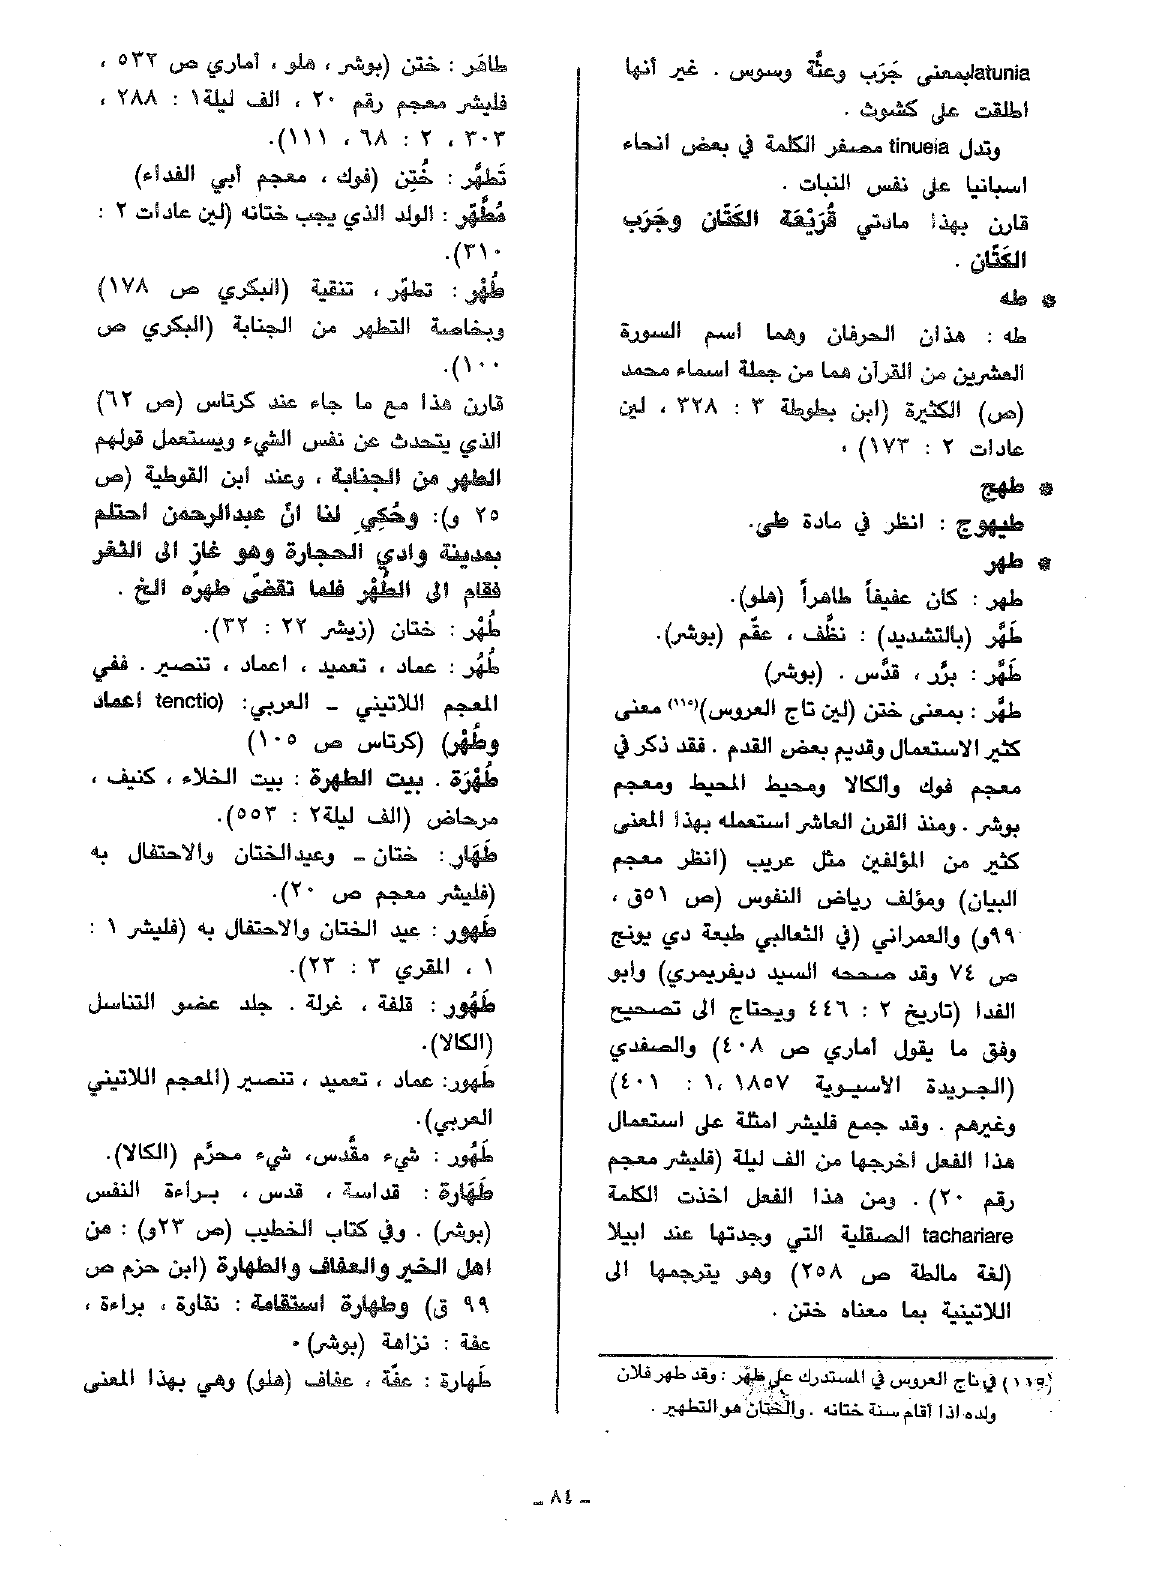 latuniaبمعنى جَرَب وعثّة وسوس . غير أنها
اطلقت على كشوث .
وتدل tinueia مصغر الكلمة في بعض انحاء
اسبانيا على نفس النبات .
قارن بهذا مادتي قُرَيْعَة الكَتّان وجَرَب
الكَتّان .
* طه
طه : هذان الحرفان وهما اسم السورة
العشرين من القرآن هما من جملة اسماء محمد
(ص) الكثيرة (ابن بطوطة ٣ : ٣٢٨ ، لين
عادات ٢ : ١٧٣) ،
* طهج
طيهوج : انظر في مادة طي.
* طهر
طهر : كان عفيفاً طاهراً (هلو).
طَهَّر (بالتشديد) : نظَّف ، عقَّم (بوشر).
طَهَّر : برَّر ، قدَّس . (بوشر)
طهَّر : بمعنى ختن (لين تاج العروس)(١١٥) معنى
كثير الاستعمال وقديم بعض القدم . فقد ذكر في
معجم فوك والكالا ومحيط المحيط ومعجم
بوشر . ومنذ القرن العاشر استعمله بهذا المعنى
كثير من المؤلفين مثل عريب (انظر معجم
البيان) ومؤلف رياض النفوس (ص ٥١ق ،
٩٩و) والعمراني (في الثعالبي طبعة دي يونج
ص ٧٤ وقد صححه السيد ديفريمري) وابو
الفدا (تاريخ ٢ : ٤٤٦ ويحتاج الى تصحيح
وفق ما يقول أماري ص ٤٠٨) والصفدي
(الجريدة الآسيوية ١٨٥٧ ،١ : ٤٠١)
وغيرهم . وقد جمع فليشر امثلة على استعمال
هذا الفعل أخرجها من الف ليلة (فليشر معجم
رقم ٢٠) . ومن هذا الفعل اخذت الكلمة
tachariare الصقلية التي وجدتها عند ابيلا
(لغة مالطة ص ٢٥٨) وهو يترجمها الى
اللاتينية بما معناه ختن .
(١١٥) في تاج العروس في المستدرك على طهّر : وقد طهر فلان
ولده اذا أقام سنة ختانه . والختان هو التطهير .
طاهَر : ختن (بوشر ، هلو ، أماري ص ٥٣٢ ،
فليشر معجم رقم ٢٠ ، الف ليلة١ : ٢٨٨ ،
٣٠٣ ، ٢ : ٦٨ ، ١١١).
تَطهَّر : خُتِن (فوك ، معجم أبي الفداء)
مُطَّهَر : الولد الذي يجب ختانه (لين عادات ٢ :
٣١٠).
طُهْر : تطهّر ، تنقية (البكري ص ١٧٨)
وبخاصة التطهر من الجنابة (البكري ص
١٠٠).
قارن هذا مع ما جاء عند كرتاس (ص ٦٢)
الذي يتحدث عن نفس الشيء ويستعمل قولهم
الطهر من الجنابة ، وعند ابن القوطية (ص
٢٥ و): وحُكي لنا انّ عبدالرحمن احتلم
بمدينة وادي الحجارة وهو غازٍ الى الثغر
فقام الى الطُهْر فلما تقضّى طهرُه الخ .
طُهْر : ختان (زيشر ٢٢ : ٣٢).
طُهُر : عماد ، تعميد ، اعماد ، تنصير . ففي
المعجم اللاتيني - العربي: (tenctio اعماد
وطُهْر) (كرتاس ص ١٠٥)
طُهْرَة . بيت الطهرة : بيت الخلاء ، كنيف ،
مرحاض (الف ليلة٢ : ٥٥٣).
طَهَار : ختان - وعيدالختان والاحتفال به
(فليشر معجم ص ٢٠).
طَهور : عيد الختان والاحتفال به (فليشر ١ :
١ ، المقري ٣ : ٢٣).
طَهُور : قلفة ، غرلة . جلد عضو التناسل
(الكالا).
طَهور: عماد ، تعميد ، تنصير (المعجم اللاتيني
العربي).
طَهُور : شيء مقَّدس، شيء محرَّم (الكالا).
طَهَارة : قداسة ، قدس ، براءة النفس
(بوشر) . وفي كتاب الخطيب (ص ٢٣و) : من
اهل الخير والعفاف والطهارة (ابن حزم ص
٩٩ ق) وطهارة استقامة : نقارة ، براءة ،
عفة : نزاهة (بوشر) .
طَهارة : عفّة ، عفاف (هلو) وهي بهذا المعنى
- ٨٤ -